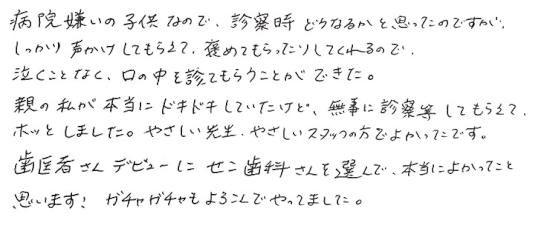 病院嫌いの子供なので、診察時どうなるかと思ってたのですが、
しっかり声かけしてもらえて、褒めてもらったりしてくれるので、
泣くことなく、口の中を診てもらうことができた。
親の私が本当にドキドキしていたけど、無事に診察等してもらえて、
ホッとしました。やさしい先生、やさしいスタッフの方でよかったです。
歯医者さんデビューにゼン歯科さんを選んで、本当によかったこと
思います！ガチャガチャもよろこんでやってました。